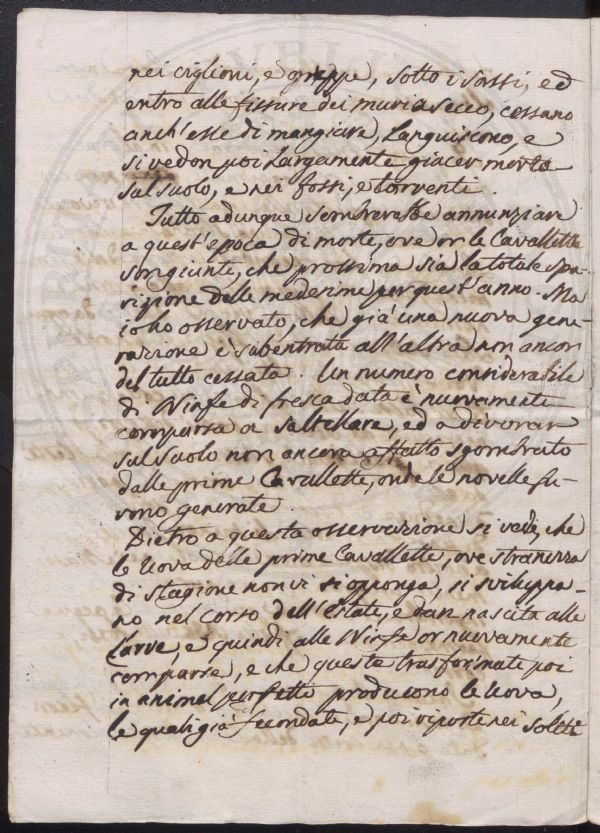 nei ciglioni, e greppe, sotto i sassi, ed
entro alle fissure dei muri a secco, cessano
anch'esse di mangiare, Languiscono, e
si vedon poi Largamente giacer morte
sul suolo, e nei fossi, e torrenti.
Tutto adunque sembrerebbe annunziare
a quest'epoca di morte, ove or le Cavallette
son giunte, che prossima sia la totale spa-
rizione delle medesime per quest'anno. Ma
io ho osservato, che già una nuova gene-
razione è subentrata all'altra non ancor
del tutto cessata. Un numero considerabile
di Ninfe di fresca data è nuovamente
comparsa a saltellare, ed a divorar
sul suolo non ancora affatto sgombrato
dalle prime Cavallette, onde le novelle fu-
rono generate.
Dietro a questa osservazione si vede, che
le Uova delle prime Cavallette, ove stranezza
di stagione non vi si opponga, si sviluppa-
no nel corso dell'Estate, e dan nascita alle
Larve, e quindi alle Ninfe or nuovamente
comparse, e che queste trasformate poi
in animel perfetti producono le Uova,
le quali già fecondate, e poi riposte nei soliti